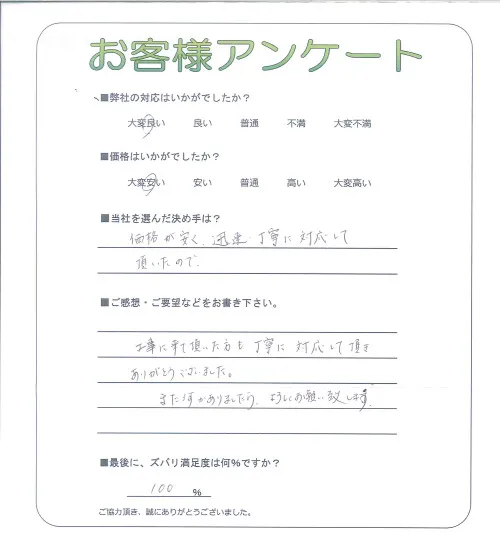 お客様アンケート
■弊社の対応はいかがでしたか？
大変良い 良い 普通 不満 大変不満
■価格はいかがでしたか？
大変安い 安い 普通 高い 大変高い
■当社を選んだ決め手は？
価格が安く、迅速、丁寧に対応して
頂いたので
■ご感想・ご要望などをお書き下さい。
工事に来て頂いた方も丁寧に対応して頂き
ありがとうございました。
また何かありましたら、よろしくお願い致します。
■最後に、ズバリ満足度は何％ですか？
100 ％
ご協力頂き、誠にありがとうございました。